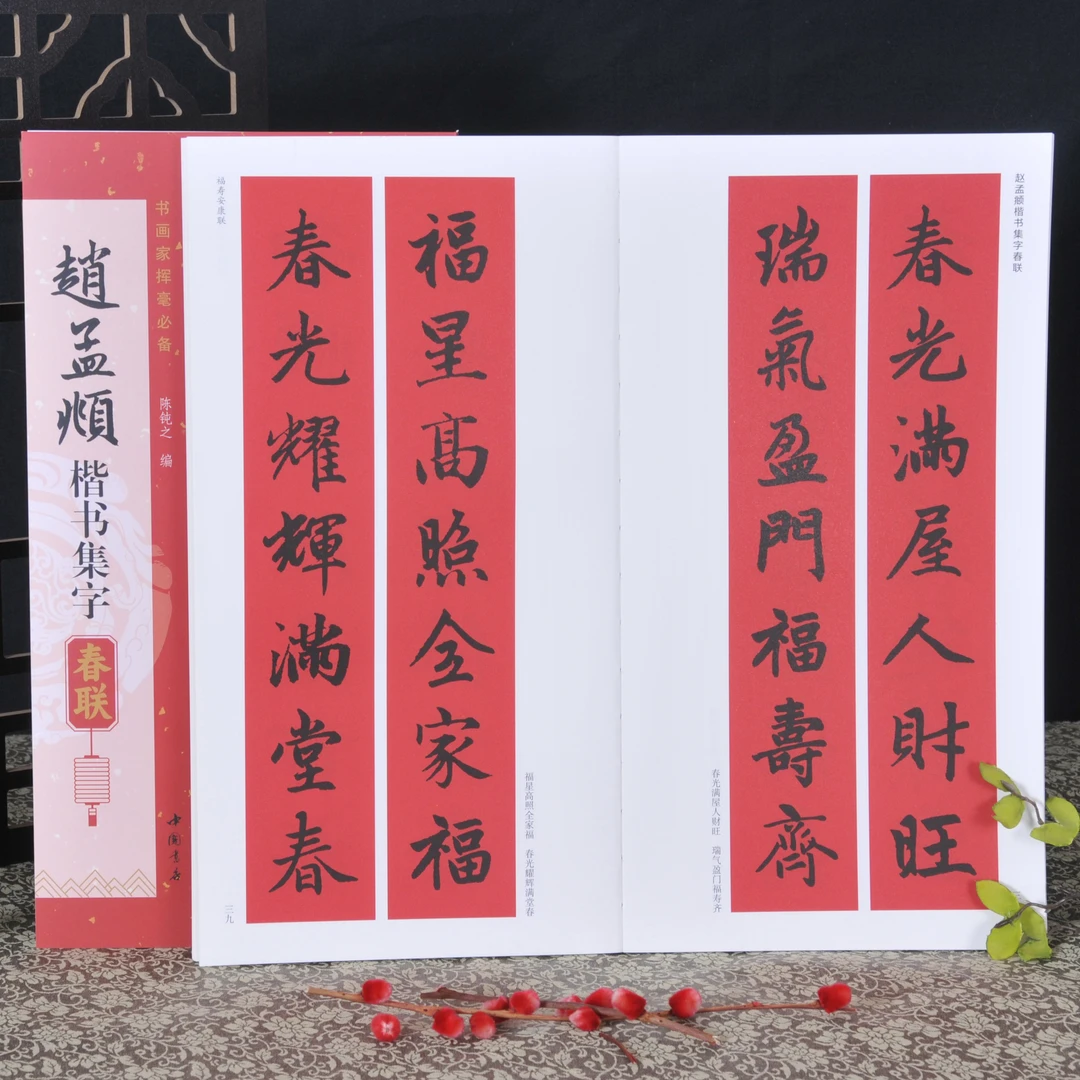 書画家挥毫必备
趙孟頫
楷书集字
春联
陈钝之 编
中國書店
赵孟頫楷书集字春联
春光满屋人財旺
瑞氣盈門福壽齊
春光满屋人财旺 瑞气盈门福寿齐
福星髙照全家福
春光耀輝满堂春
福星高照全家福 春光耀辉满堂春
福寿安康联
三九